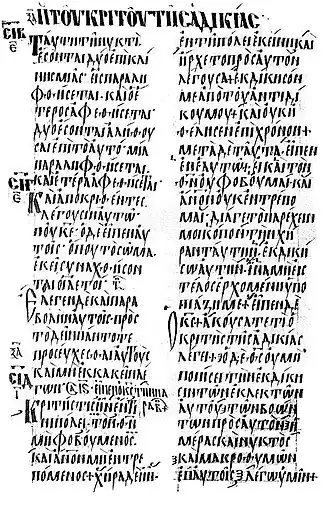 ΠΤΟΥΚΡΙΤΟΥΤΗΣΑΔΙΚΙΑΣ
ΤΑΥΤΗΤΗΝΥΚΤΙ
ΕΣΟΝΤΑΙΔΥΟΕΠΙΚΛΙ
ΝΗΣΜΙΑΣ· ΕΙΣΠΑΡΑΛΗ
ΦΘΗΣΕΤΑΙ· ΚΑΙΟΕ
ΤΕΡΟΣΑΦΕΘΗΣΕΤΑΙ
ΔΥΟΕΣΟΝΤΑΙΑΛΗΘΟΥ
ΣΑΙΕΠΙΤΟΑΥΤΟ· ΜΙΑ
ΠΑΡΑΛΗΦΘΗΣΕΤΑΙ
ΚΑΙΕΤΕΡΑΑΦΕΘΗΣΕΤΑΙ
ΚΑΙΑΠΟΚΡΙΘΕΝΤΕΣ
ΛΕΓΟΥΣΙΝΑΥΤΩ
ΠΟΥΚΕ· ΟΔΕΕΙΠΕΝΑΥ
ΤΟΙΣ· ΟΠΟΥΤΟΣΩΜΑ
ΕΚΕΙΣΥΝΑΧΘΗΣΟΝ
ΤΑΙΟΙΑΕΤΟΙ
ΕΛΕΓΕΝΔΕΚΑΙΠΑΡΑ
ΒΟΛΗΝΑΥΤΟΙΣ· ΠΡΟΣ
ΤΟΔΕΙΝΠΑΝΤΟΤΕ
ΠΡΟΣΕΥΧΕΣΘΑΙΑΥΤΟΥΣ
ΚΑΙΜΗΕΚΚΑΚΕΙΝΛΕ
ΓΩΝ
ΚΡΙΤΗΣΤΙΣΗΝΕΝΤΙ
ΝΙΠΟΛΕΙ· ΤΟΝΘΝ
ΜΗΦΟΒΟΥΜΕΝΟΣ
ΚΑΙΑΝΟΝΜΗΕΝΤΡΕ
ΠΟΜΕΝΟΣ· ΧΗΡΑΔΕΗΝ
ΕΝΤΗΠΟΛΕΙΕΚΕΙΝΗΚΑΙ
ΗΡΧΕΤΟΠΡΟΣΑΥΤΟΝ
ΛΕΓΟΥΣΑ· ΕΚΔΙΚΗΣΟΝ
ΜΕΑΠΟΤΟΥΑΝΤΙΔΙ
ΚΟΥΜΟΥ· ΚΑΙΟΥΚΗ
ΘΕΛΗΣΕΝΕΠΙΧΡΟΝΟΝ·
ΜΕΤΑΔΕΤΑΥΤΑΕΙΠΕΝ
ΕΝΕΑΥΤΩ· ΕΙΚΑΙΤΟΝ
ΘΝΟΥΦΟΒΟΥΜΑΙ· ΚΑΙ
ΑΝΟΝΟΥΚΕΝΤΡΕΠΟ
ΜΑΙ· ΔΙΑΓΕΤΟΠΑΡΕΧΕΙΝ
ΜΟΙΚΟΠΟΝΤΗΝΧΗ
ΡΑΝΤΑΥΤΗΝ· ΕΚΔΙΚΗ
ΣΩΑΥΤΗΝ· ΙΝΑΜΗΕΙΣ
ΤΕΛΟΣΕΡΧΟΜΕΝΗΥΠΟ
ΠΙΑΖΗΜΕ· ΕΙΠΕΝΔΕ
ΟΚΣ· ΑΚΟΥΣΑΤΕΤΙΟ
ΚΡΙΤΗΣΤΗΣΑΔΙΚΙΑΣ
ΛΕΓΕΙ· ΟΔΕΘΣΟΥΜΗ
ΠΟΙΗΣΕΙΤΗΝΕΚΔΙΚΗ
ΣΙΝΤΩΝΕΚΛΕΚΤΩΝ
ΑΥΤΟΥΤΩΝΒΟΩΝ
ΤΩΝΠΡΟΣΑΥΤΟΝΗ
ΜΕΡΑΣΚΑΙΝΥΚΤΟΣ
ΚΑΙΜΑΚΡΟΘΥΜΩΝ
ΕΠΑΥΤΟΙΣ· ΛΕΓΩΥΜΙΝ·